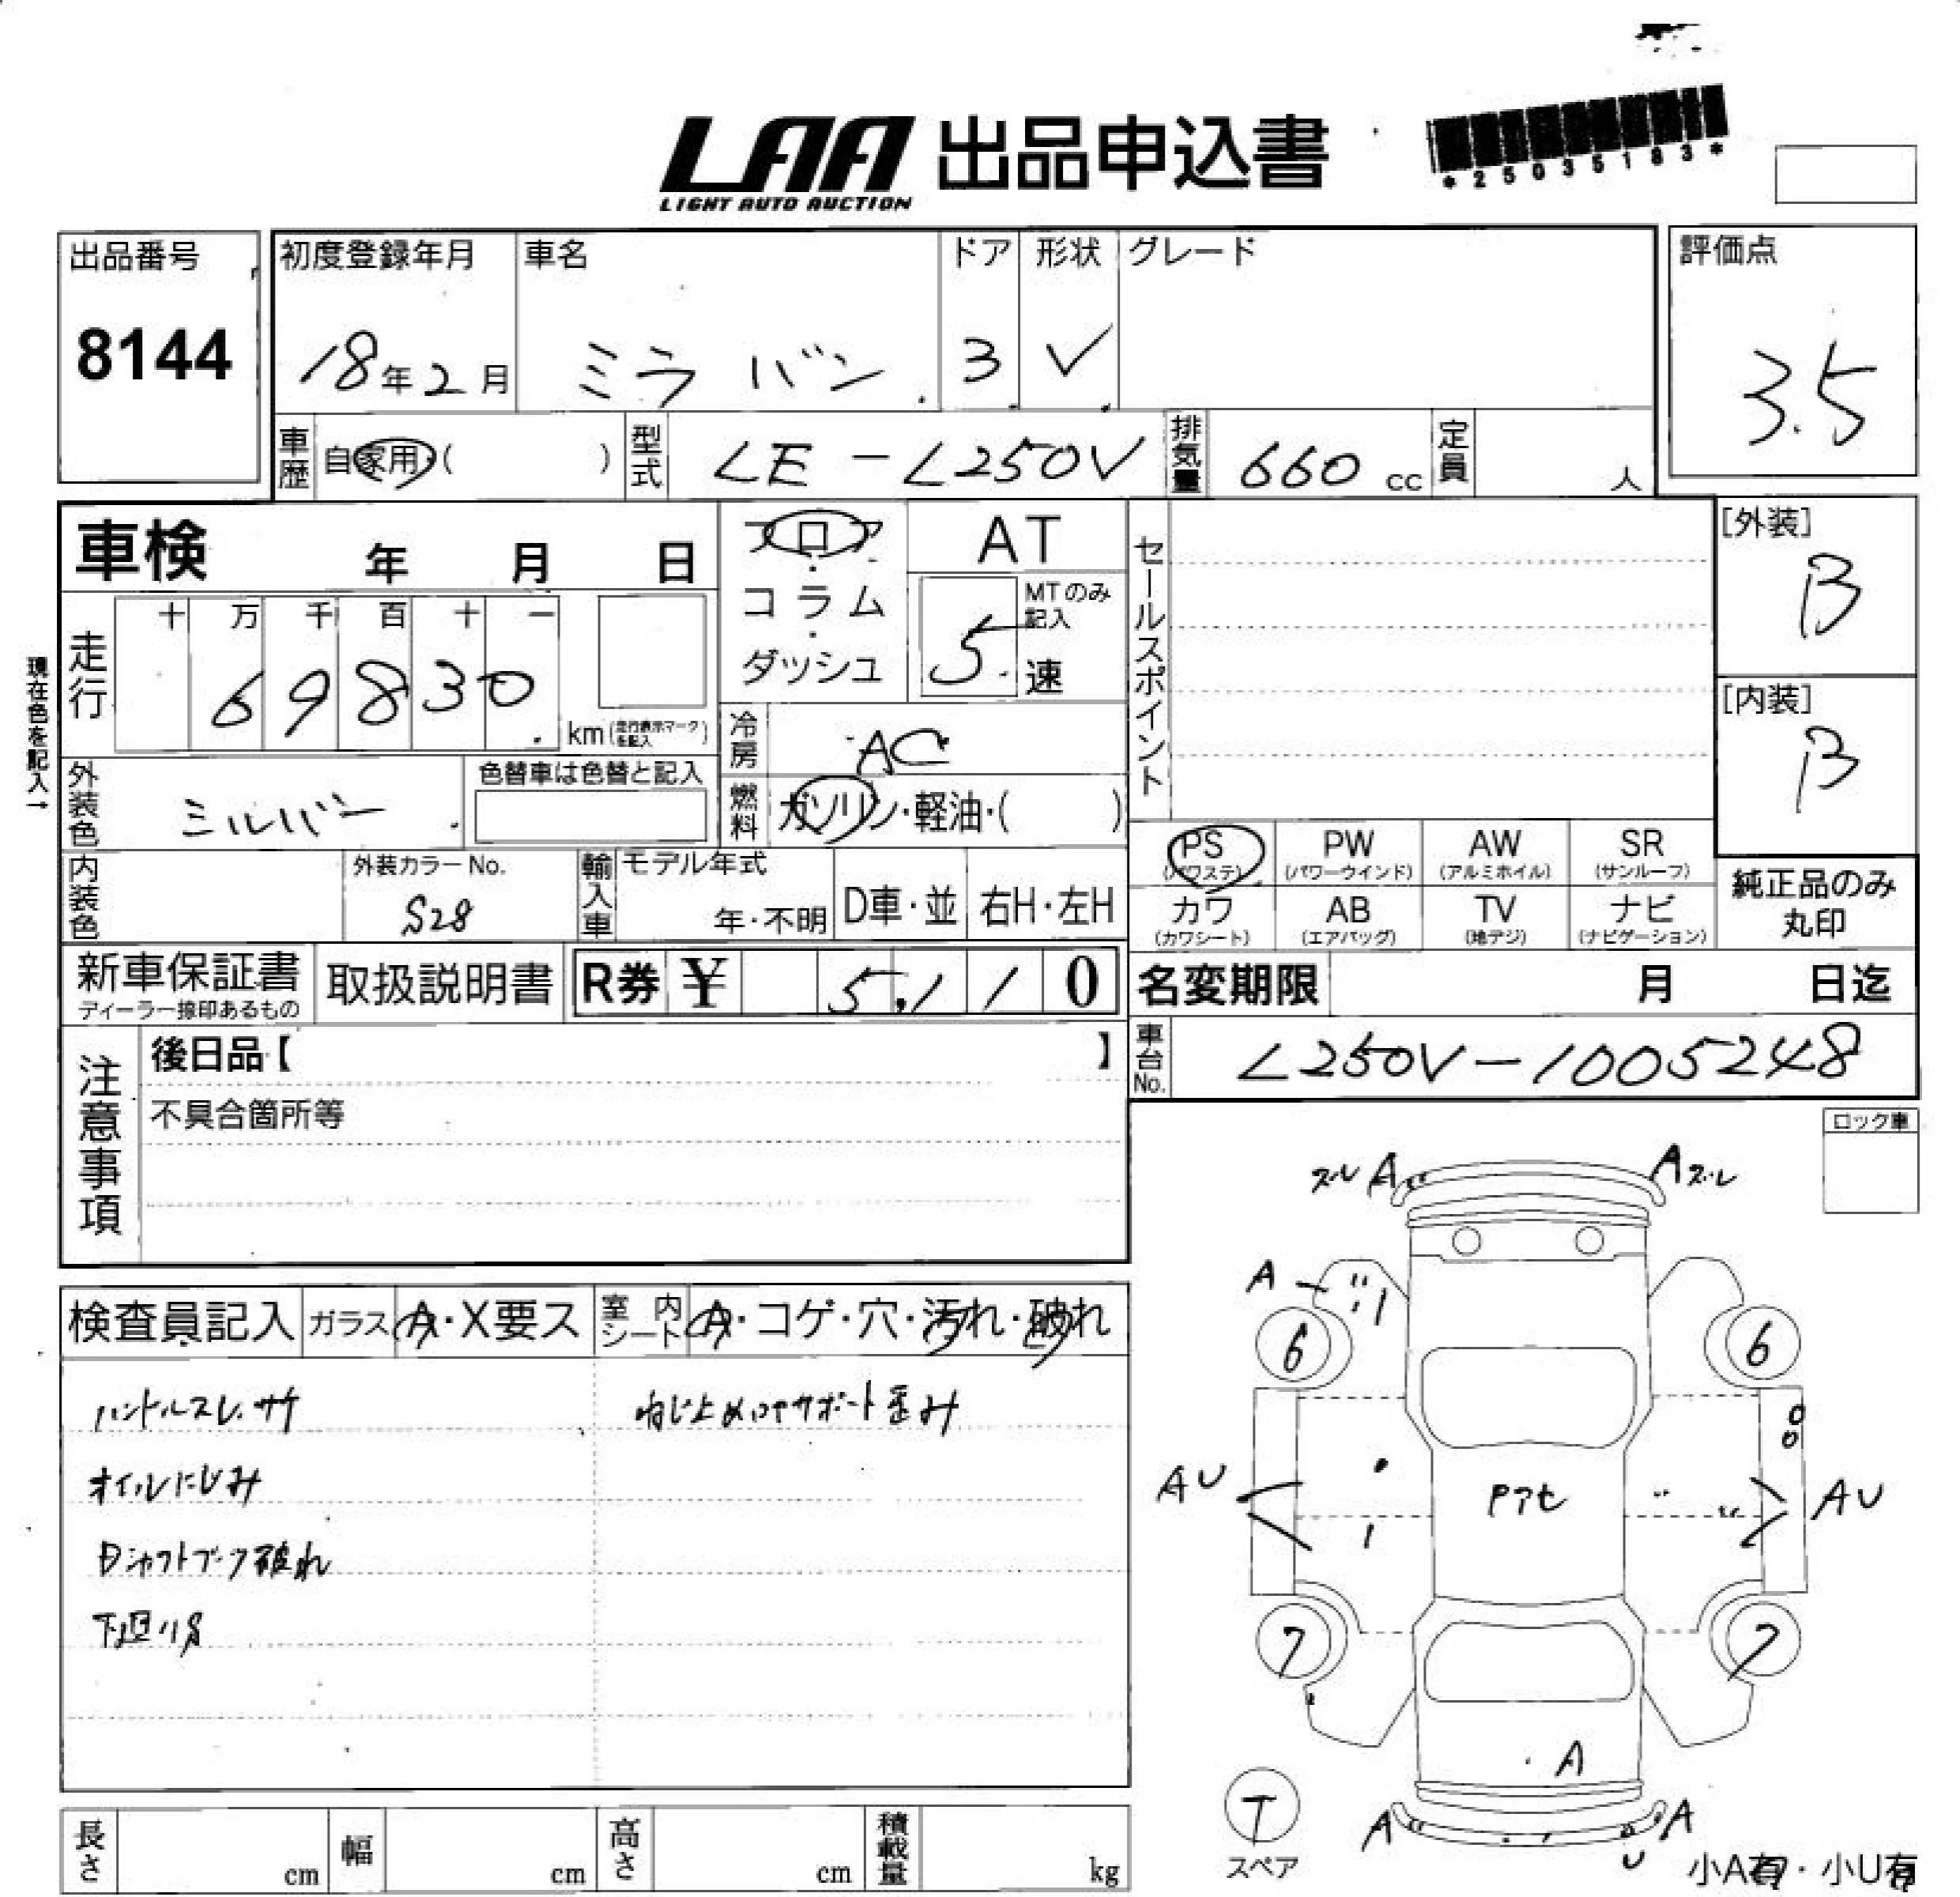 LAA 出品申込書
LIGHT AUTO AUCTION
*25035183*
出品番号
8144
初度登録年月
18年2月
車名
ミラ バン
ドア
3
形状
✓
グレード
評価点
3.5
車歴 自家用( )
型式 LE-L250V
排気量 660cc
定員 人
車検 年 月 日
フロア・コラム・ダッシュ
AT
MTのみ記入
5速
セールスポイント
[外装]
B
[内装]
B
現在色を記入→
走行
十 万 千 百 十 一
69830
km(走行表示マークを記入)
冷房 AC
燃料 ガソリン・軽油・( )
外装色 シルバー
色替車は色替と記入
内装色
外装カラーNo.
S28
輸入車
モデル年式
年・不明
D車・並
右H・左H
PS
(パワステ)
PW
(パワーウインド)
AW
(アルミホイル)
SR
(サンルーフ)
カワ
(カワシート)
AB
(エアバッグ)
TV
(地デジ)
ナビ
(ナビゲーション)
純正品のみ
丸印
新車保証書
ディーラー捺印あるもの
取扱説明書
R券 ¥ 5,110
名変期限 月 日迄
車台No. L250V-1005248
注意事項
後日品【 】
不具合箇所等
ロック車
検査員記入
ガラス A・X要ス
室内シート A・コゲ・穴・汚れ・破れ
ハンドルスレ、サケ
ねじ止めロアサポート歪み
オイルにじみ
Dシャフトブーツ破れ
下廻りS
スレ A
A スレ
A
6
6
AU
Pアセ
AU
7
7
A
T
スペア
A
A
U
小A有・小U有
長さ cm
幅 cm
高さ cm
積載量 kg